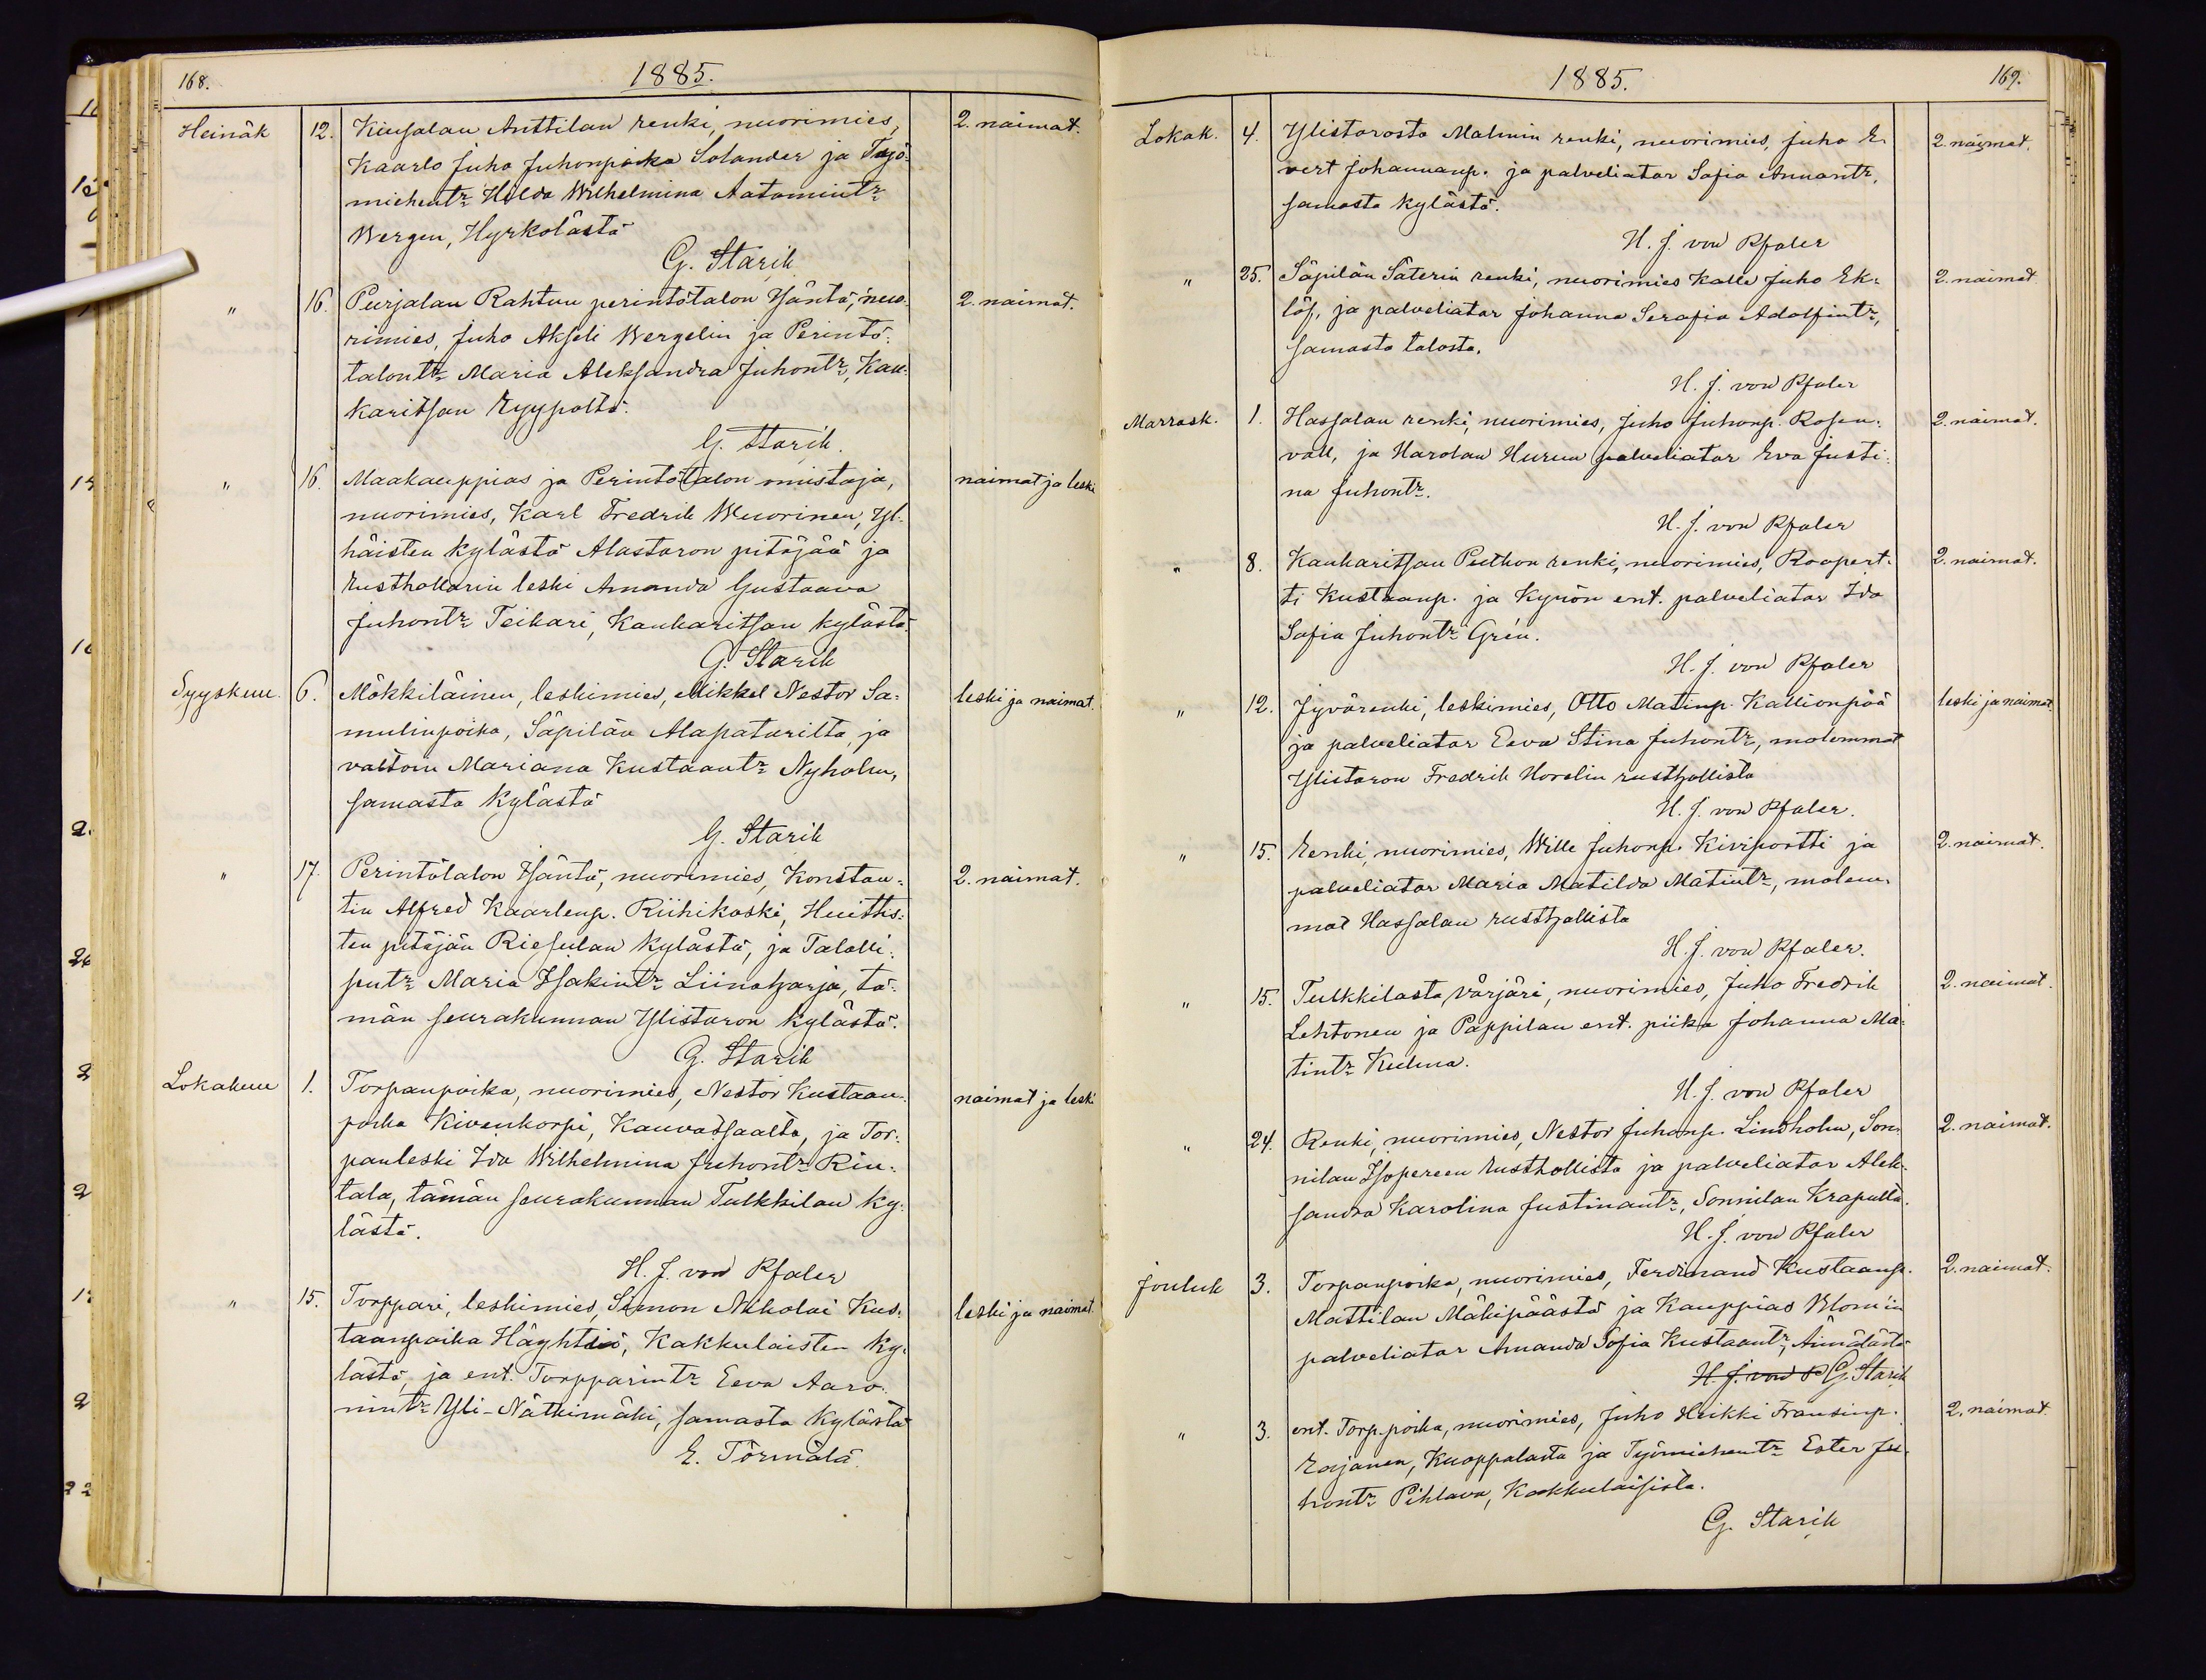 168.
1885.
Heinäk 12. Kiusalan Anttilan renki, nuorimies, 2. naimat.
Kaarlo Juho Juhonpoika Solander ja Työ-
miehentr Hilda Wilhelmina Aatamintr
Wergen, Hyrkölästä
G. Starik
" 16. Purjalan Rahtun perintötalon Isäntä, nuo- 2. naimat.
rimies, Juho Akseli Wergelin ja Perintö-
talontr Maria Aleksandra Juhontr, Kau-
karitsan Ryypoltä.
G. Starik.
" 16. Maakauppias ja Perintötalon omistaja, naimat ja leski
nuorimies, Karl Fredrik Wuorinen, Yl-
häisten kylästä Alastaron pitäjää ja
Rusthollarin leski Amanda Gustaava
Juhontr Teikari, Kaukaritsan kylästä.
G. Starik
Syyskuu 6. Mökkiläinen, leskimies, Mikkel Nestor Sa- leski ja naimat.
mulinpoika, Säpilän Alapaturilta, ja
vaitom Mariana Kustaantr Nyholm,
samasta kylästä
G. Starik
" 17. Perintötalon Isäntä, nuorimies, Konstan- 2. naimat.
tin Alfred Kaarlenp. Riihikoski, Huittis-
ten pitäjän Riesulan kylästä, ja Talolli-
sentr Maria Isakintr Liinaharja, tä-
män seurakunnan Ylistaron kylästä.
G. Starik
Lokakuu 1. Torpanpoika, nuorimies, Nestor Kustaan- naimat ja leski
poika Kivenkorpi, Kauvatsaalta, ja Tor-
panleski Ida Wilhelmina Juhontr Rin-
tala, tämän seurakunnan Tulkkilan ky-
lästä.
H. J. von Pfaler
" 15. Torppari, leskimies, Simon Nikolai Kus- leski ja naimat.
taanpoika Häyhtiö, Kakkulaisten ky-
lästä, ja ent. Torpparintr Eeva Aaro-
nintr Yli-Nätkimäki, samasta kylästä
E. Törmälä.
1885.
169.
Lokak. 4. Ylistarosta Malmin renki, nuorimies, Juho E- 2. naimat.
vert Johannanp. ja palveliatar Sofia Annantr,
samasta kylästä.
H. J. von Pfaler
" 25. Säpilän Säterin renki, nuorimies Kalle Juho Ek- 2. naimat
löf, ja palveliatar Johanna Serafia Adolfintr,
samasta talosta.
H. J. von Pfaler
Marrask. 1. Hassalan renki, nuorimies, Juho Juhonp. Rosen- 2. naimat.
vall, ja Harolan Hurun palveliatar Eva Justi-
na Juhontr.
H. J. von Pfaler
" 8. Kaukaritsan Puthon renki, nuorimies, Roopert- 2. naimat.
ti Kustaanp. ja Kynön ent. palveliatar Ida
Sofia Juhontr Grén.
H. J. von Pfaler
" 12. Jyvärenki, leskimies, Otto Matinp. Kallionpää leski ja naimat.
ja palveliatar Eeva Stina Juhontr, molemmat
Ylistaron Fredrik Horelin rusthollista
H. J. von Pfaler.
" 15. Renki, nuorimies, Wille Juhonp. Kiviportti ja 2. naimat.
palveliatar Maria Matilda Matintr, molem-
mat Hassalan rusthollista
H. J. von Pfaler.
" 15. Tulkkilasta Värjäri, nuorimies, Juho Fredrik 2. naimat.
Lehtonen ja Pappilan ent. piika Johanna Ma-
tintr Kulma.
H. J. von Pfaler
" 24. Renki, nuorimies, Nestor Juhanp. Lindholm, Son- 2. naimat.
nilan Isopereen Rusthollista ja palveliatar Alek-
sandra Karolina Justinantr, Sonnilan Krapulta.
H. J. von Pfaler
Jouluk 3. Torpanpoika, nuorimies, Ferdinand Kustaanp. 2. naimat.
Mattilan Mäkipäästä ja Kauppias Blomin
palveliatar Amanda Sofia Kustaantr, Äimälästä
H. J. von P G. Starik
" 3. ent. Torp.poika, nuorimies, Juho Heikki Fransinp. 2. naimat
Rajanen, Kuoppalasta ja Työmiehentr Ester Ju-
hontr Pihlava, Kakkulaisista.
G. Starik